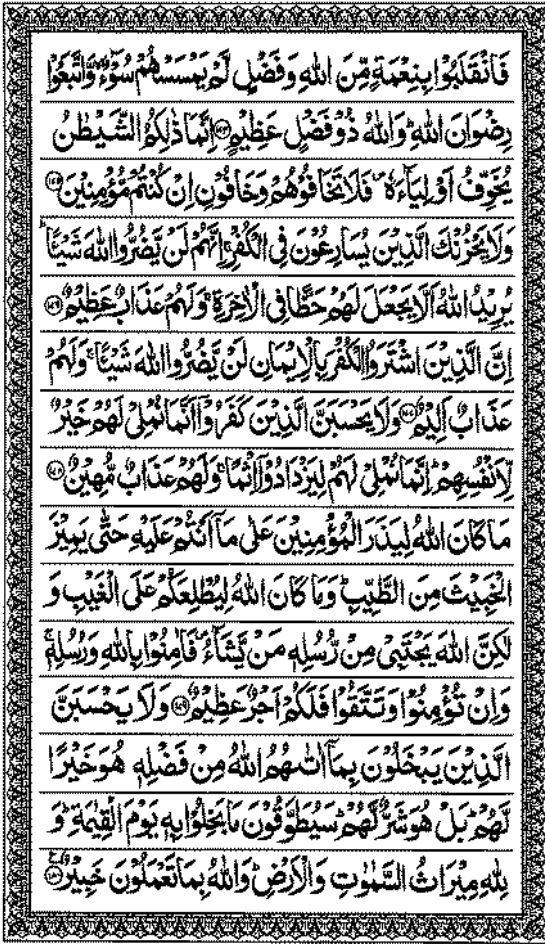 فَانْقَلَبُوْا بِنِعْمَةٍ مِّنَ اللّٰهِ وَفَضْلٍ لَّمْ يَمْسَسْهُمْ سُوْٓءٌ ۙ وَّاتَّبَعُوْا
رِضْوَانَ اللّٰهِ ؕ وَاللّٰهُ ذُوْ فَضْلٍ عَظِيْمٍ ﴿۱۷۴﴾ اِنَّمَا ذٰلِكُمُ الشَّيْطٰنُ
يُخَوِّفُ اَوْلِيَآءَهٗ ۪ فَلَا تَخَافُوْهُمْ وَخَافُوْنِ اِنْ كُنْتُمْ مُّؤْمِنِيْنَ ﴿۱۷۵﴾
وَلَا يَحْزُنْكَ الَّذِيْنَ يُسَارِعُوْنَ فِى الْكُفْرِ ۚ اِنَّهُمْ لَنْ يَّضُرُّوا اللّٰهَ شَيْـًٔا ؕ
يُرِيْدُ اللّٰهُ اَلَّا يَجْعَلَ لَهُمْ حَظًّا فِى الْاٰخِرَةِ ۚ وَلَهُمْ عَذَابٌ عَظِيْمٌ ﴿۱۷۶﴾
اِنَّ الَّذِيْنَ اشْتَرَوُا الْكُفْرَ بِالْاِيْمَانِ لَنْ يَّضُرُّوا اللّٰهَ شَيْـًٔا ۚ وَلَهُمْ
عَذَابٌ اَلِيْمٌ ﴿۱۷۷﴾ وَلَا يَحْسَبَنَّ الَّذِيْنَ كَفَرُوْۤا اَنَّمَا نُمْلِىْ لَهُمْ خَيْرٌ
لِّاَنْفُسِهِمْ ؕ اِنَّمَا نُمْلِىْ لَهُمْ لِيَزْدَادُوْۤا اِثْمًا ۚ وَلَهُمْ عَذَابٌ مُّهِيْنٌ ﴿۱۷۸﴾
مَا كَانَ اللّٰهُ لِيَذَرَ الْمُؤْمِنِيْنَ عَلٰى مَاۤ اَنْتُمْ عَلَيْهِ حَتّٰى يَمِيْزَ
الْخَبِيْثَ مِنَ الطَّيِّبِ ؕ وَمَا كَانَ اللّٰهُ لِيُطْلِعَكُمْ عَلَى الْغَيْبِ وَ
لٰكِنَّ اللّٰهَ يَجْتَبِىْ مِنْ رُّسُلِهٖ مَنْ يَّشَآءُ ۪ فَاٰمِنُوْا بِاللّٰهِ وَرُسُلِهٖ ۚ
وَاِنْ تُؤْمِنُوْا وَتَتَّقُوْا فَلَكُمْ اَجْرٌ عَظِيْمٌ ﴿۱۷۹﴾ وَلَا يَحْسَبَنَّ
الَّذِيْنَ يَبْخَلُوْنَ بِمَاۤ اٰتٰىهُمُ اللّٰهُ مِنْ فَضْلِهٖ هُوَ خَيْرًا
لَّهُمْ ؕ بَلْ هُوَ شَرٌّ لَّهُمْ ؕ سَيُطَوَّقُوْنَ مَا بَخِلُوْا بِهٖ يَوْمَ الْقِيٰمَةِ ؕ وَ
لِلّٰهِ مِيْرَاثُ السَّمٰوٰتِ وَالْاَرْضِ ؕ وَاللّٰهُ بِمَا تَعْمَلُوْنَ خَبِيْرٌ ﴿۱۸۰﴾